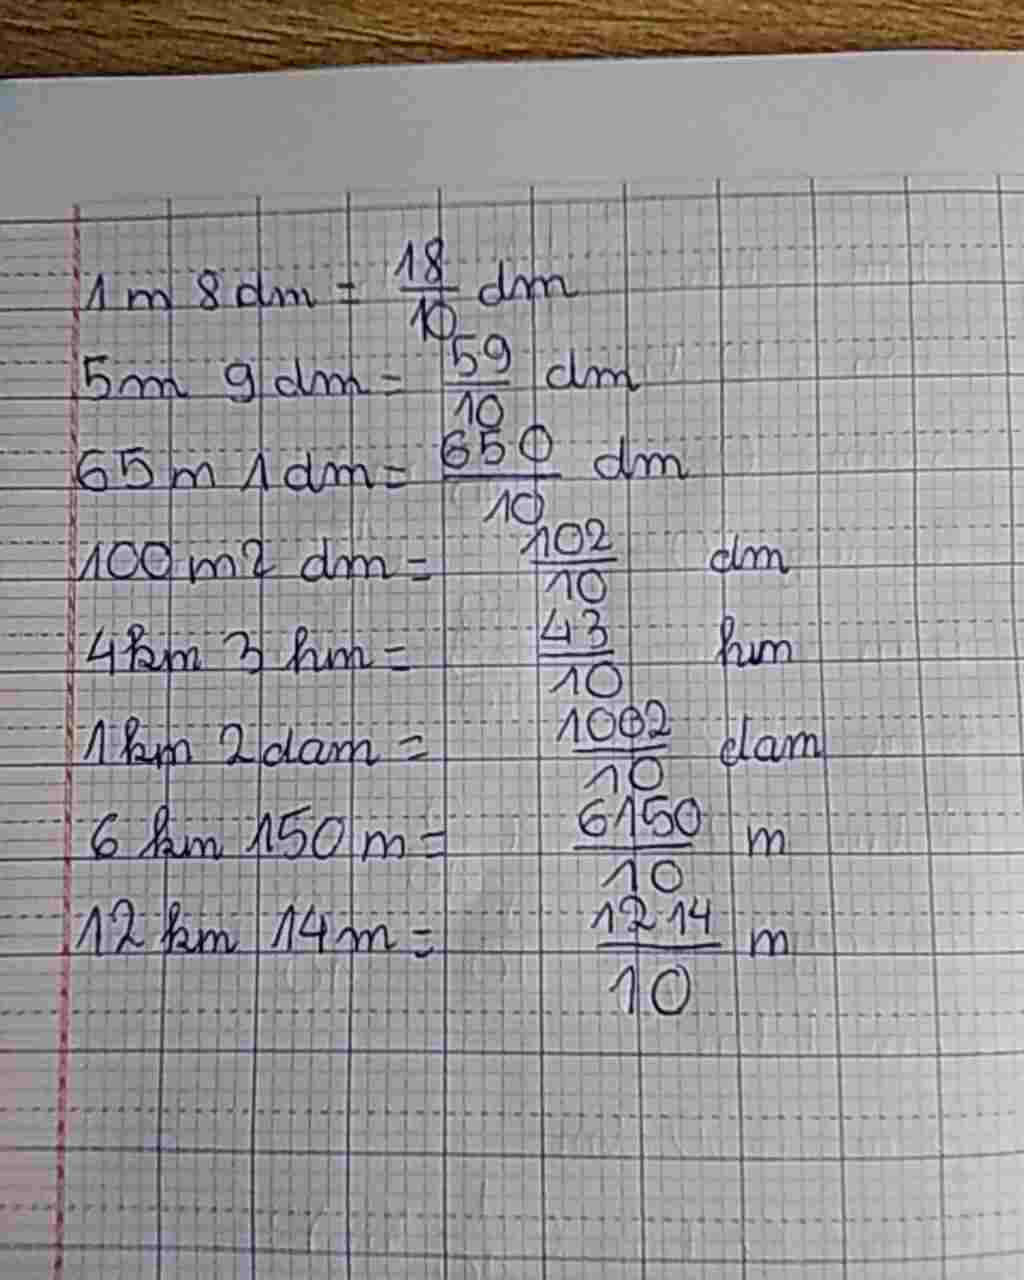 1m 8dm = 18/10 dm
5m 9dm = 59/10 dm
65m 1dm = 650/10 dm
100m2 dm = 102/10 dm
4km 3 hm = 43/10 hm
1km 2dam = 1002/10 dam
6 km 150m = 6150/10 m
12km 14m = 1214/10 m